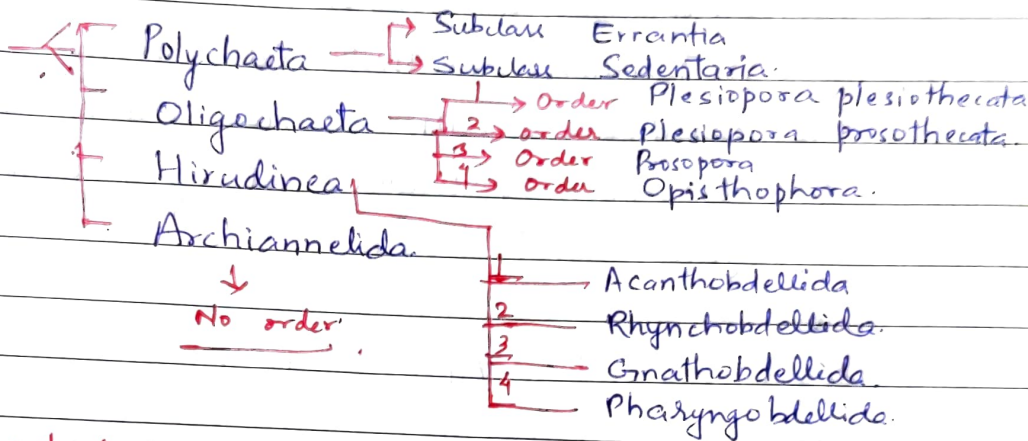 Polychaeta
Subclass Errantia
Subclass Sedentaria.
Oligochaeta
1 Order Plesiopora plesiothecata
2 order Plesiopora prosothecata.
3 Order Prosopora
4 order Opisthophora.
Hirudinea
1 Acanthobdellida
2 Rhynchobdellida.
3 Gnathobdellida
4 Pharyngobdellida.
Archiannelida.
No order.